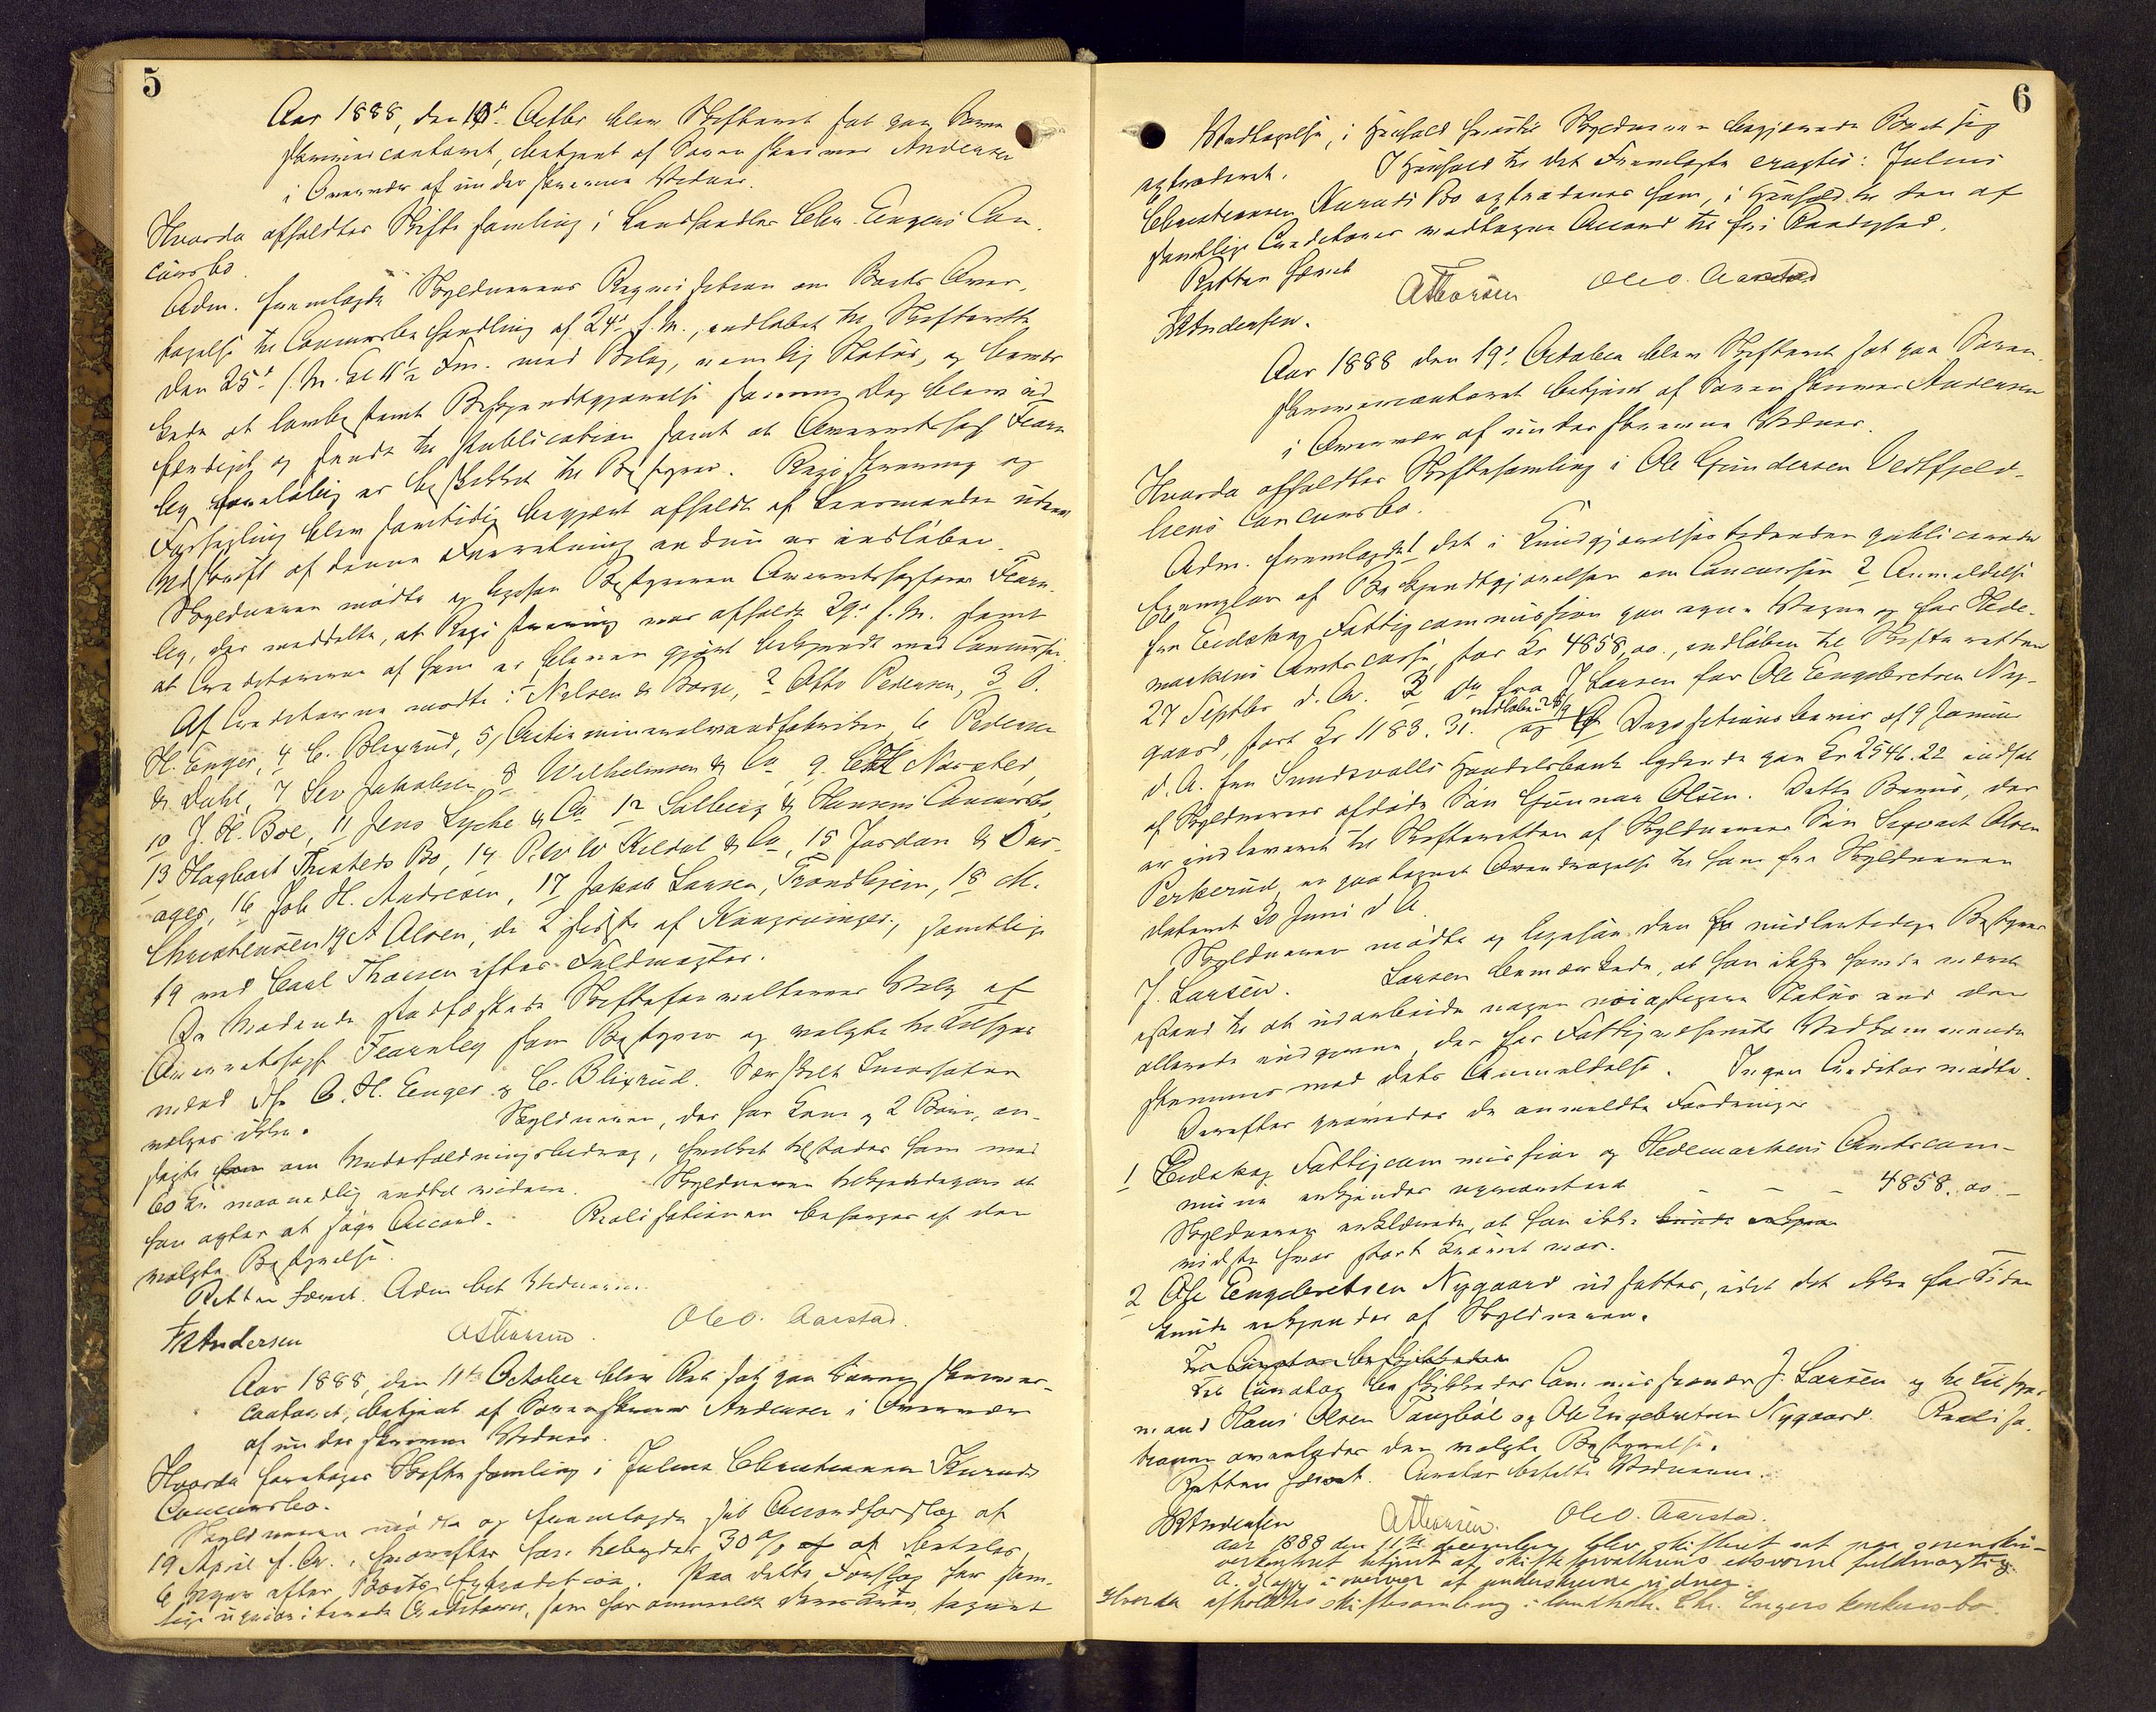 5
Aar 1888, den 10de Octbr blev Skifteret sat paa Soren
skrivercontoret, betjent af Sorenskriver Andersen
i Overvær af underskrevne Vidner.
Hvorda afholdtes Skiftesamling i Landhandler Chr. Engers Con-
cursbo.
Adm. fremlagde Skyldnerens Reqvisition om Boets Over-
tagelse til Concursbehandling af 24de f. M., indløbet til Skifteretten
den 25de f. M. Kl 11½ Fm. med Bilag, nemlig Status, og bemær-
kede at lovbestemt Bekjendtgjørelse samme Dag blev ud-
færdiget og sendt til Publication samt at Overretssagf Fearn
ley foreløbig er beskikket til Bestyrer. Registrering og
Forsegling blev samtidig begjært afholdt af Lensmanden uden
Udskrift af denne Forretning endnu er indløben.
Skyldneren mødte og ligesaa Bestyreren Overretssagfører Fearn-
ley, der meddelte, at Registrering var afholdt 29de f. M. samt
at Creditorerne af ham er bleven gjort bekjendt med Concursen.
Af Creditorerne mødte: 1 Nilsen & Borge, 2 Otto Pedersen, 3 O.
H. Enger, 4 C. Blixrud, 5, Actiemineralvandfabriken, 6 Pedersen
& Dahl, 7 Sev Jakobsen, 8 Wilhelmsen & Co, 9. Navestad,
10 J. H. Boe, 11 Jens Lyche & Co 12 Solberg & Hansens Concursbo,
13 Hagbart Thresteds Bo, 14 P. W W Kildal & Co, 15 Jordan & Ous-
ager, 16 Joh H. Andresen, 17 Jakob Larsen, Trondhjem, 18 M.
Christensen 19 A Olsen, de 2 sidste af Kongsvinger, samtlige
19 ved Carl Thoresen efter Fuldmagter.
De Mødende stadfæstede Skifteforvalterens Valg af
Overretssagf Fearnley som Bestyrer og valgte til Tilsyns
mænd O. H. Enger og C. Blixrud. Særskilt Incassator
vælges ikke. Skyldneren, der har Kone og 2 Børn, an-
søgte om Underholdningsbidrag, hvilket tilstodes ham med
60 Kr. maanedlig indtil videre. Skyldneren tilkjendegav at
han agter at søge Accord. Realisationen besørges af den
valgte Bestyrelse.
Retten hævet. Adm bet Vidnerne.
Andersen AThoresen. Ole O. Aarstad.
Aar 1888, den 11te October blev Ret sat paa Sorenskriver-
contoret, betjent af Sorenskriver Andersen i Overvær
af underskrevne Vidner.
Hvorda foretoges Skiftesamling i Julius Christiansen Kuruds
Concursbo.
Skyldneren mødte og fremlagde sit Accordforslag af
19 April f. Ar., hvorefter han tilbyder 30 % at betales
6 Uger efter Boets Extradition. Paa dette Forslag har sam-
lige uprioriterede Creditorer, som har anmeldt deres Krav, tegnet
6
Vedtagelse, i Henhold hvortil Skyldneren begjærede Boet sig
extraderet. I Henhold til det Fremlagte eragtes: Julius
Christiansen Kuruds Bo extraderes ham, i Henhold til den af
samtlige Creditorer vedtagne Accord til fri Raadighed.
Retten hævet
Andersen. AThoresen Ole O. Aarstad
Aar 1888 den 19de October blev Skifteret sat paa Soren-
skrivercontoret betjent af Sorenskriver Andersen
i Overvær af underskrevne Vidner.
Hvorda afholdtes Skiftesamling i Ole Gundersen Vestfjeld-
liens Concursbo.
Adm. fremlagde 1 det i Kundgjørelsestidenden publicerede
Exemplar af Bekjendtgjørelsen om Concursen 2 Anmeldelse
fra Eidskog Fattigcommission paa egne Vegne og for Hede-
markens Amtscasse, stor Kr 4858,00., indløben til Skifteretten
27 Septbr d. Ar. 3 do fra J Larsen for Ole Engebretsen Ny-
gaard, stort Kr 1183. 31. indløben 28/9 og Depositionsbevis af 9 Januar
d. A. fra Sundsvalls Handelsbank lydende paa Kr 2546.22 indsat
af Skyldnerens afdøde Søn Gunnar Olsen. Dette Bevis, der
er indleveret til Skifteretten af Skyldnerens Søn Sigvart Olsen
Perkerud, er paategnet Overdragelse til ham fra Skyldneren
dateret 30 Juni d A.
Skyldneren mødte og ligesaa den midlertidige Bestyrer
J. Larsen. Larsen bemærkede, at han ikke havde været
istand til at udarbeide nogen nøiagtigere Status end den
allerede indgivne, der for Fattigvæsenets Vedkommende
stemmer med dets Anmeldelse. Ingen Creditor mødte.
Derefter prøvedes de anmeldte Fordringer
1 Eidskog Fattigcommission og Hedemarkens Amtscom-
mune erkjendes uprioriteret – – – 4858.00 –
Skyldneren erklærede, at han ikke kunde
vidste hvor stort Kravet var.
2 Ole Engebretsen Nygaard udsattes, idet det ikke for Tiden
kunde erkjendes af Skyldneren.
Til Curator beskikkedes
Til Curator beskikkedes Commissionær J. Larsen og til Tilsyns
mænd Hans Olsen Tangbøl og Ole Engebretsen Nygaard. Realisa-
tionen overlodes den valgte Bestyrelse.
Retten hævet. Curator betalte Vidnerne.
Andersen AThoresen. Ole O. Aarstad.
Aar 1888 den 11te december blev skifteret sat paa sorenskri-
verkontoret betjent af skifteforvalterens edsvorne fuldmægtig
A. i overvær af underskrevne vidner.
Hvorda afholdtes skiftesamling i landhdl. Chr. Engers konkursbo.